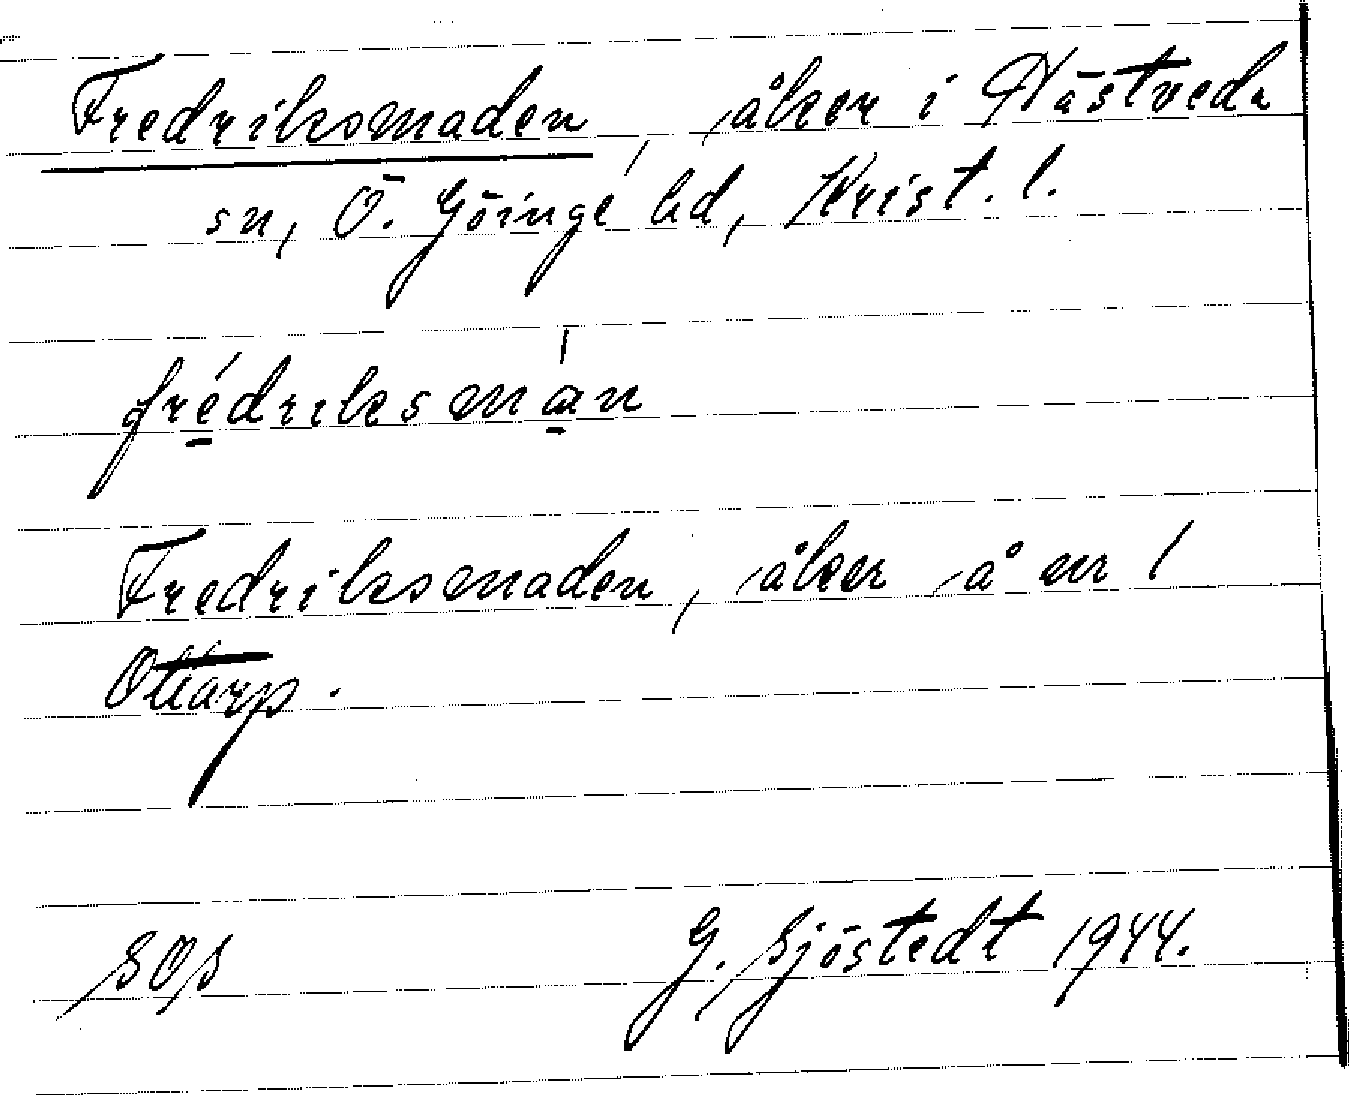 Fredriksmaden, åker i Hästveda
sn, Ö. Göinge hd, Krist. l.
frédriksmán
Fredriksmaden, åker å nr 1
Ottarp.
SOS G. Sjöstedt 1944.